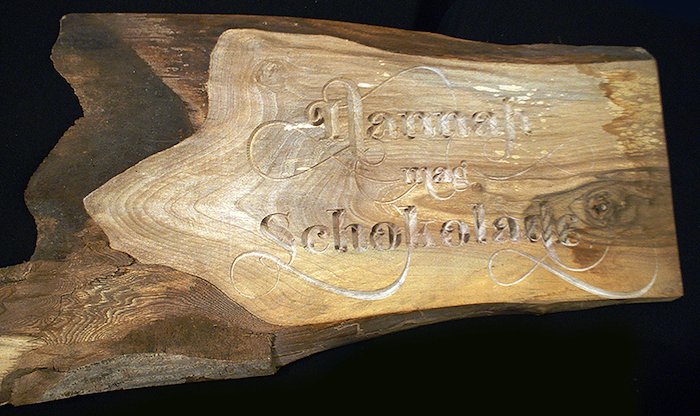 Hannah
mag
Schokolade